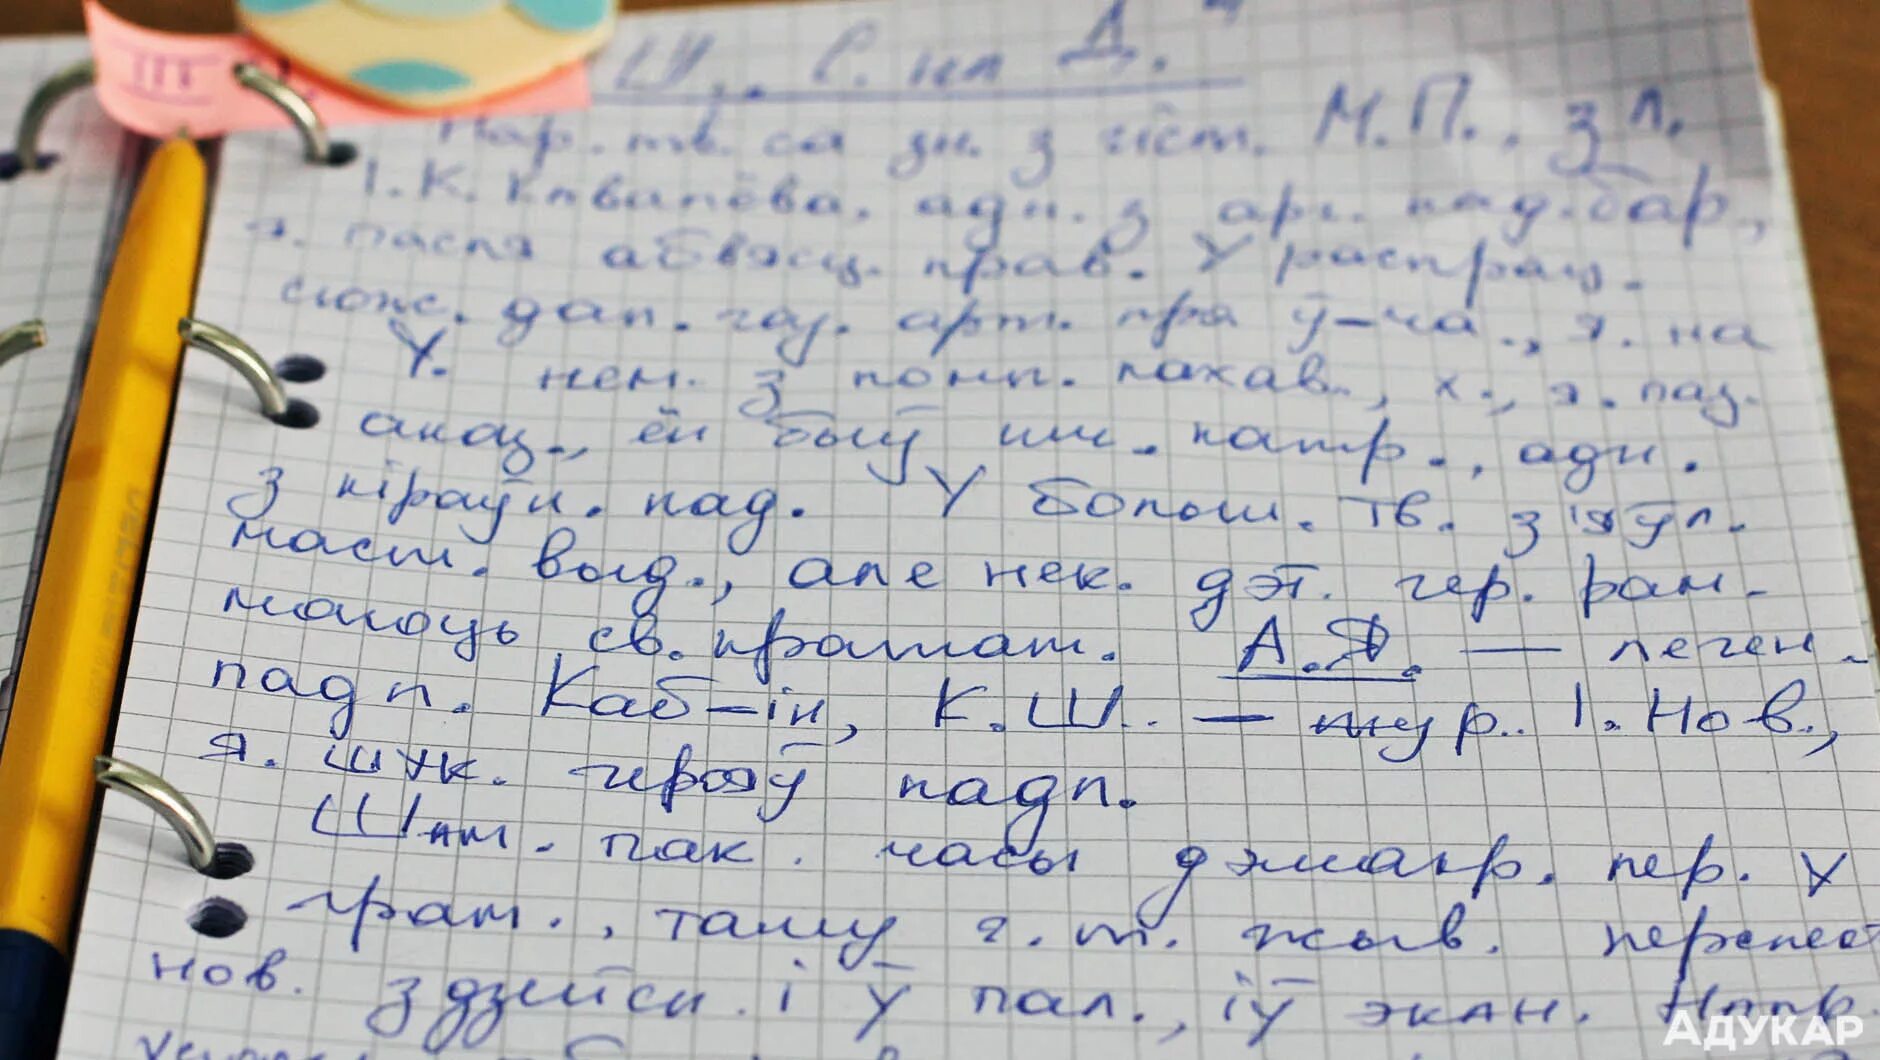 III
Ш.. С. на Д."
Нар. тв. са зн. з гіст. М.П., з л.
І.К. адн. з арг. пад. бар,
я. пасля абвясц. прав. У распрац.
сюж. дап. гау. арт. пра ў-ча., я. на
У. нем. з помн. пахав., х., я. паз.
аказ., ён быў им. патр., адн.
з кіраўн. пад. У больш. тв. з'яўл.
маст. выд., але нек. дэт. гер. рам-
малоць св. пратат. А.Я. — леген.
падп. Каб-ін, К.Ш. — жур. І. Нов.,
я. шук. герояў падп.
Шмт. пак. часы дэмакр. пер. У
грам., таму г. т. жыв.
нов. здзейсн. і ў пал., іў экан. Напр.
АДУКАР